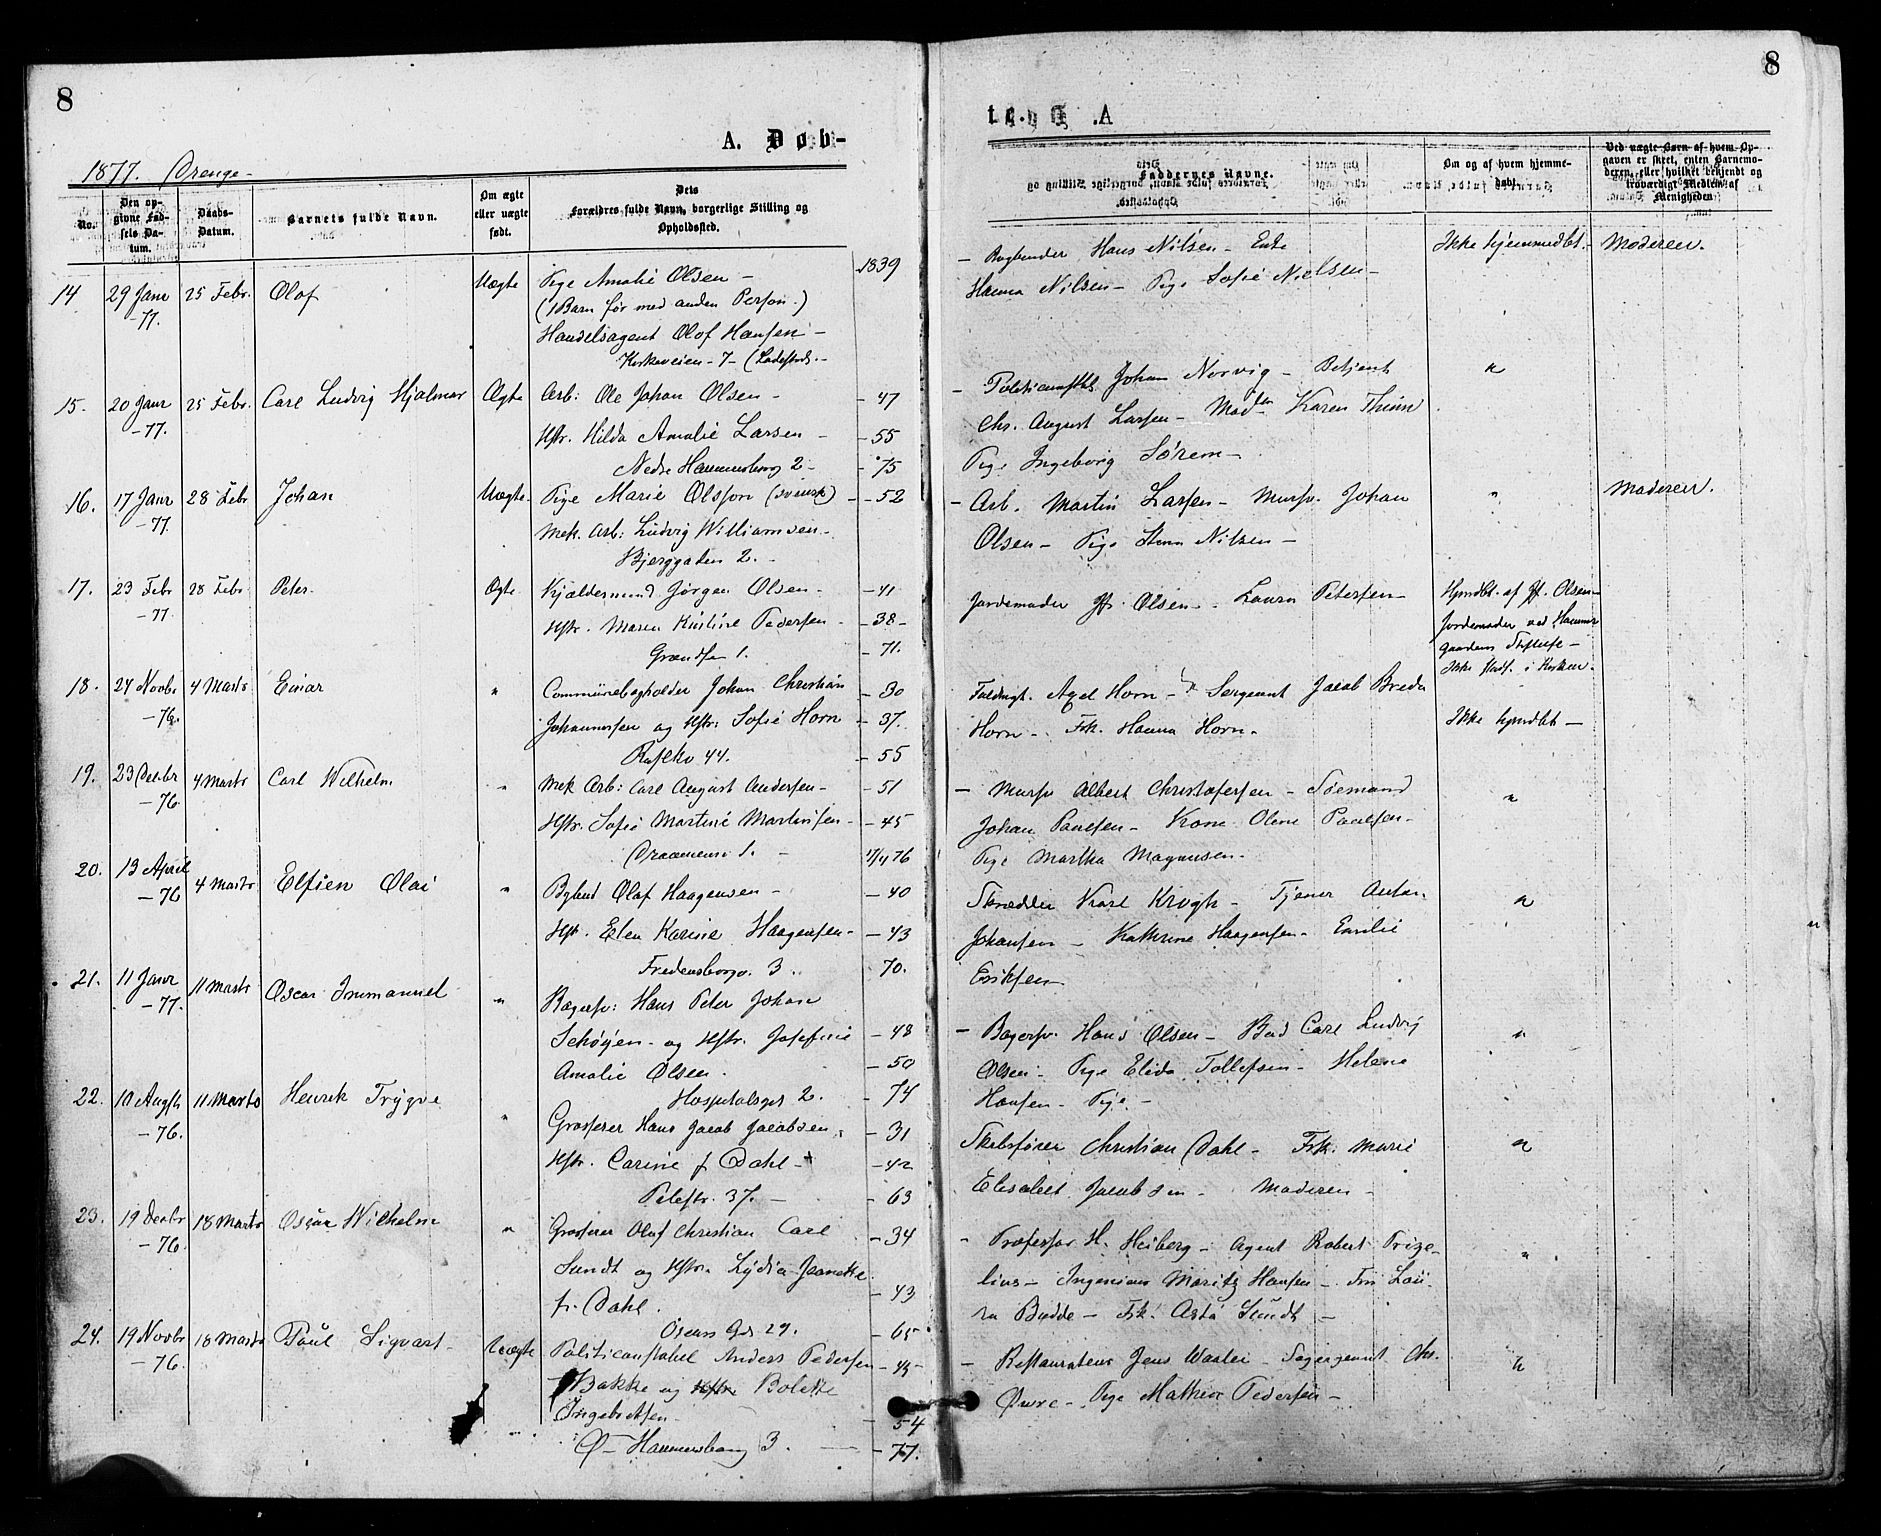 8
A. Døb-
1877. Drenge-
No.
Den op-
givne Fød-
sels Da-
tum.
Daabs-
Datum.
Barnets fulde Navn.
Om ægte
eller uægte
født.
Dets
Forældres fulde Navn, borgerlige Stilling og
Opholdssted.
14 29 Janr 25 Febr. Olaf Uægte Pige Amalie Olsen - 1839
-77. (1 Barn før med anden Person.)
Handelsagent Olof Hansen -
Kirkeveien - 7 -
15. 20 Janr 25 Febr. Carl Ludvig Hjalmar Ægte Arb: Ole Johan Olsen - - 47
-77. Hstr. Hilda Amalie Larsen - - 55
Nedre Hammersborg 2 - - 75
16. 17 Janr 28 Febr Johan Uægte. Pige Marie Olsson (svensk) - - 52
-77. Mek. Arb: Ludvig Williamsen -
Bjerggaden 2. -
17. 23 Febr 28 Febr Peter. Ægte Kjældermand Jørgen Olsen - - 41
-77. Hstr. Maren Kristine Pedersen - - 38 -
Grændsen 1. - 71.
18. 24 Novbr 4 Marts Einar " Communebogholder Johan Christian - 30
-76. Johannesen og Hstr: Sofie Horn - 37.
44. - 55
19. 23 Decbr 4 Marts Carl Wilhelm " Mek Arb: Carl August Andersen - - 51
-76 Hstr. Sofie Martine Martinsen - - 45
1. - 17/4 76
20. 13 April 4 Marts Elfien Olai " Bybud Olaf Haagensen - - 40
-76 Hstr. Elen Karine Haagensen - - 43
Fredensborgv. 3. 70.
21. 11 Janr 11 Marts Oscar Immanuel " Bagersv: Hans Peter Johan
-77. Schøyen - og Hstr. Josefine - 48
Amalie Olsen. - 50
Hospitalsgd 2. - 74
22. 10 Augst 11 Marts Henrik Trygve " Grosserer Hans Jacob Jacobsen - 31
-76. Hstr. Carine f Dahl - - 42
Pilestr. 37. - - 63
23. 19 Decbr 18 Marts Oscar Wilhelm " Grosserer Oluf Christian Carl - 34
-76. Sundt og Hstr. Lydia Jeanette
f. Dahl. - 43
Oscars Gd. 29. - 65
24. 19 Novbr 18 Marts Paul Sigvart - Uægte Politiconstabel Anders Pedersen - 49 -
-76. Bakke og Hstr Bolette
Ingebretsen - - 54
Ø - Hammersborg 3. - 77.
8
Faddernes Navne.
Om og af hvem hjemme-
døbt.
Ved uægte Børn af hvem Op-
gaven er skeet, enten Barnemo-
deren, eller hvilket bekjendt og
troværdigt Medlem af
Menigheden
- Bogbinder Hans Nilsen - Enke Ikke hjemmedbt. - Moderen.
Hanna Nilsen - Pige Sofie Nielsen -
- Politiconstbl Johan Norvig - Betjent "
Chr. August Larsen - Madm Karen Thun
Pige Ingeborg Sørem -
- Arb. Martin Larsen - Mursv. Johan " Moderen.
Olsen - Pige Nilsen -
Jordemoder Jfr. Olsen - Laura Petersen - Hjmdbt. af Jf. Olsen -
Jordemoder ved Hammer
gaardens Stiftelse -
Ikke Stadf. i Kirken.
Fuldmgt. Axel Horn - Sergeant Jacob Breda
Horn - Frk. Hanna Horn. Ikke hjmdbt -
- Mursv Albert Christofersen - Sømand "
Johan Paulsen - Kone Oline Paulsen -
Pige Martha Magnusen -
Skrædder Karl Krogh - Tjener Anton "
Johansen - Kathrine Haagensen - Emilie
Eriksen
- Bagersv. Hans Olsen - Bud Carl Ludvig "
Olsen - Pige Elida Tollefsen - Helene
Hansen - Pige -
Skibsfører Christian Dahl - Frk. Marie "
Elisabet Jacobsen - Moderen -
- Professor H. Heiberg - Agent Robert Prize- "
lius - Ingeniør Moritz Hansen - Fru Lau-
ra Budde - Frk. Asta Sundt -
- Restaurateur Jens Waaler - Chr. "
- Pige Mathea Pedersen -